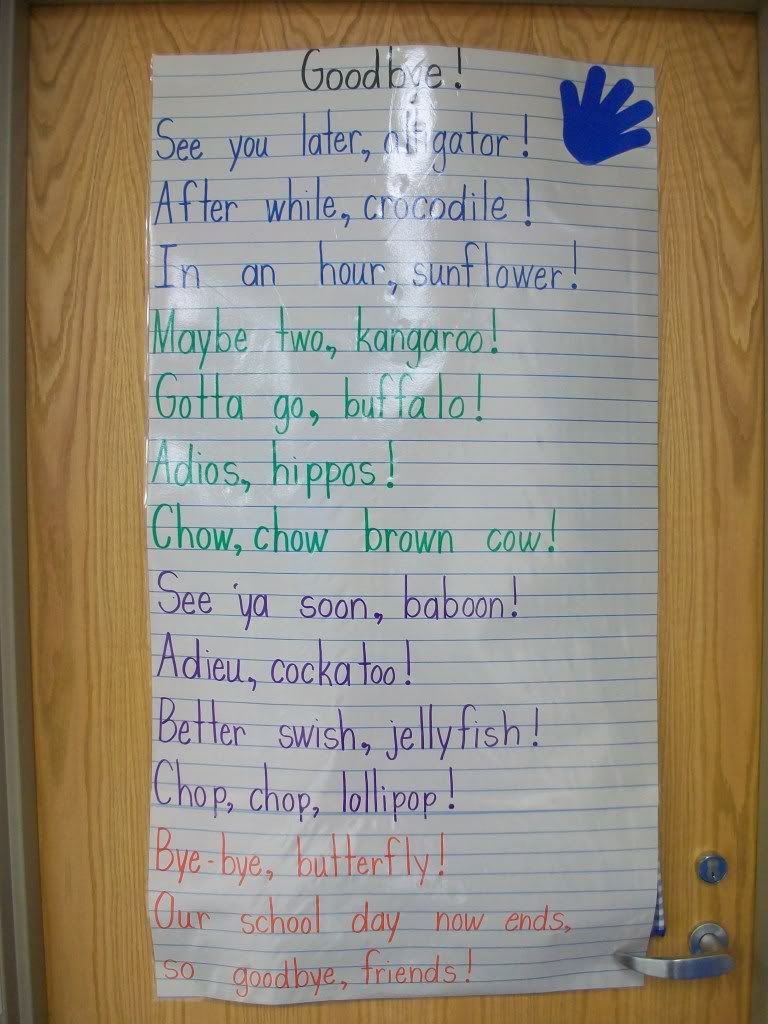 Goodbye!
See you later, alligator!
After while, crocodile!
In an hour, sunflower!
Maybe two, kangaroo!
Gotta go, buffalo!
Adios, hippos!
Chow, chow brown cow!
See 'ya soon, baboon!
Adieu, cockatoo!
Better swish, jellyfish!
Chop, chop, lollipop!
Bye-bye, butterfly!
Our school day now ends,
so goodbye, friends!